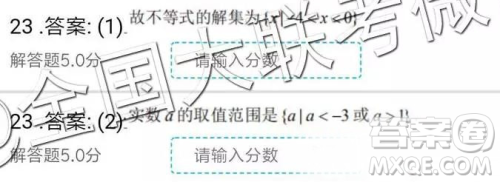 23 .答案: (1) 故不等式的解集为{x|-4<x<0}
解答题5.0分 请输入分数
23 .答案: (2) 实数a的取值范围是{a|a<-3或a>1}
解答题5.0分 请输入分数
全国大联考微
答案圈
MXQE.COM